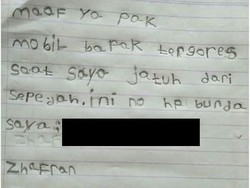 maaf ya pak
mobil bapak tergores
saat saya jatuh dari
sepedah. ini no hp bunda
saya:
Zhafran